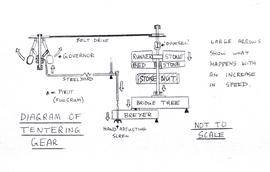 BELT DRIVE
GOVERNOR
STEELYARD
= PIVOT
(FULCRUM)
DAMSEL
RUNNER STONE
BED STONE
STONE NUT
BRIDGE TREE
BREYER
HAND ADJUSTING
SCREW
LARGE ARROWS
SHOW WHAT
HAPPENS WITH
AN INCREASE
IN SPEED.
DIAGRAM OF
TENTERING
GEAR
NOT TO
SCALE